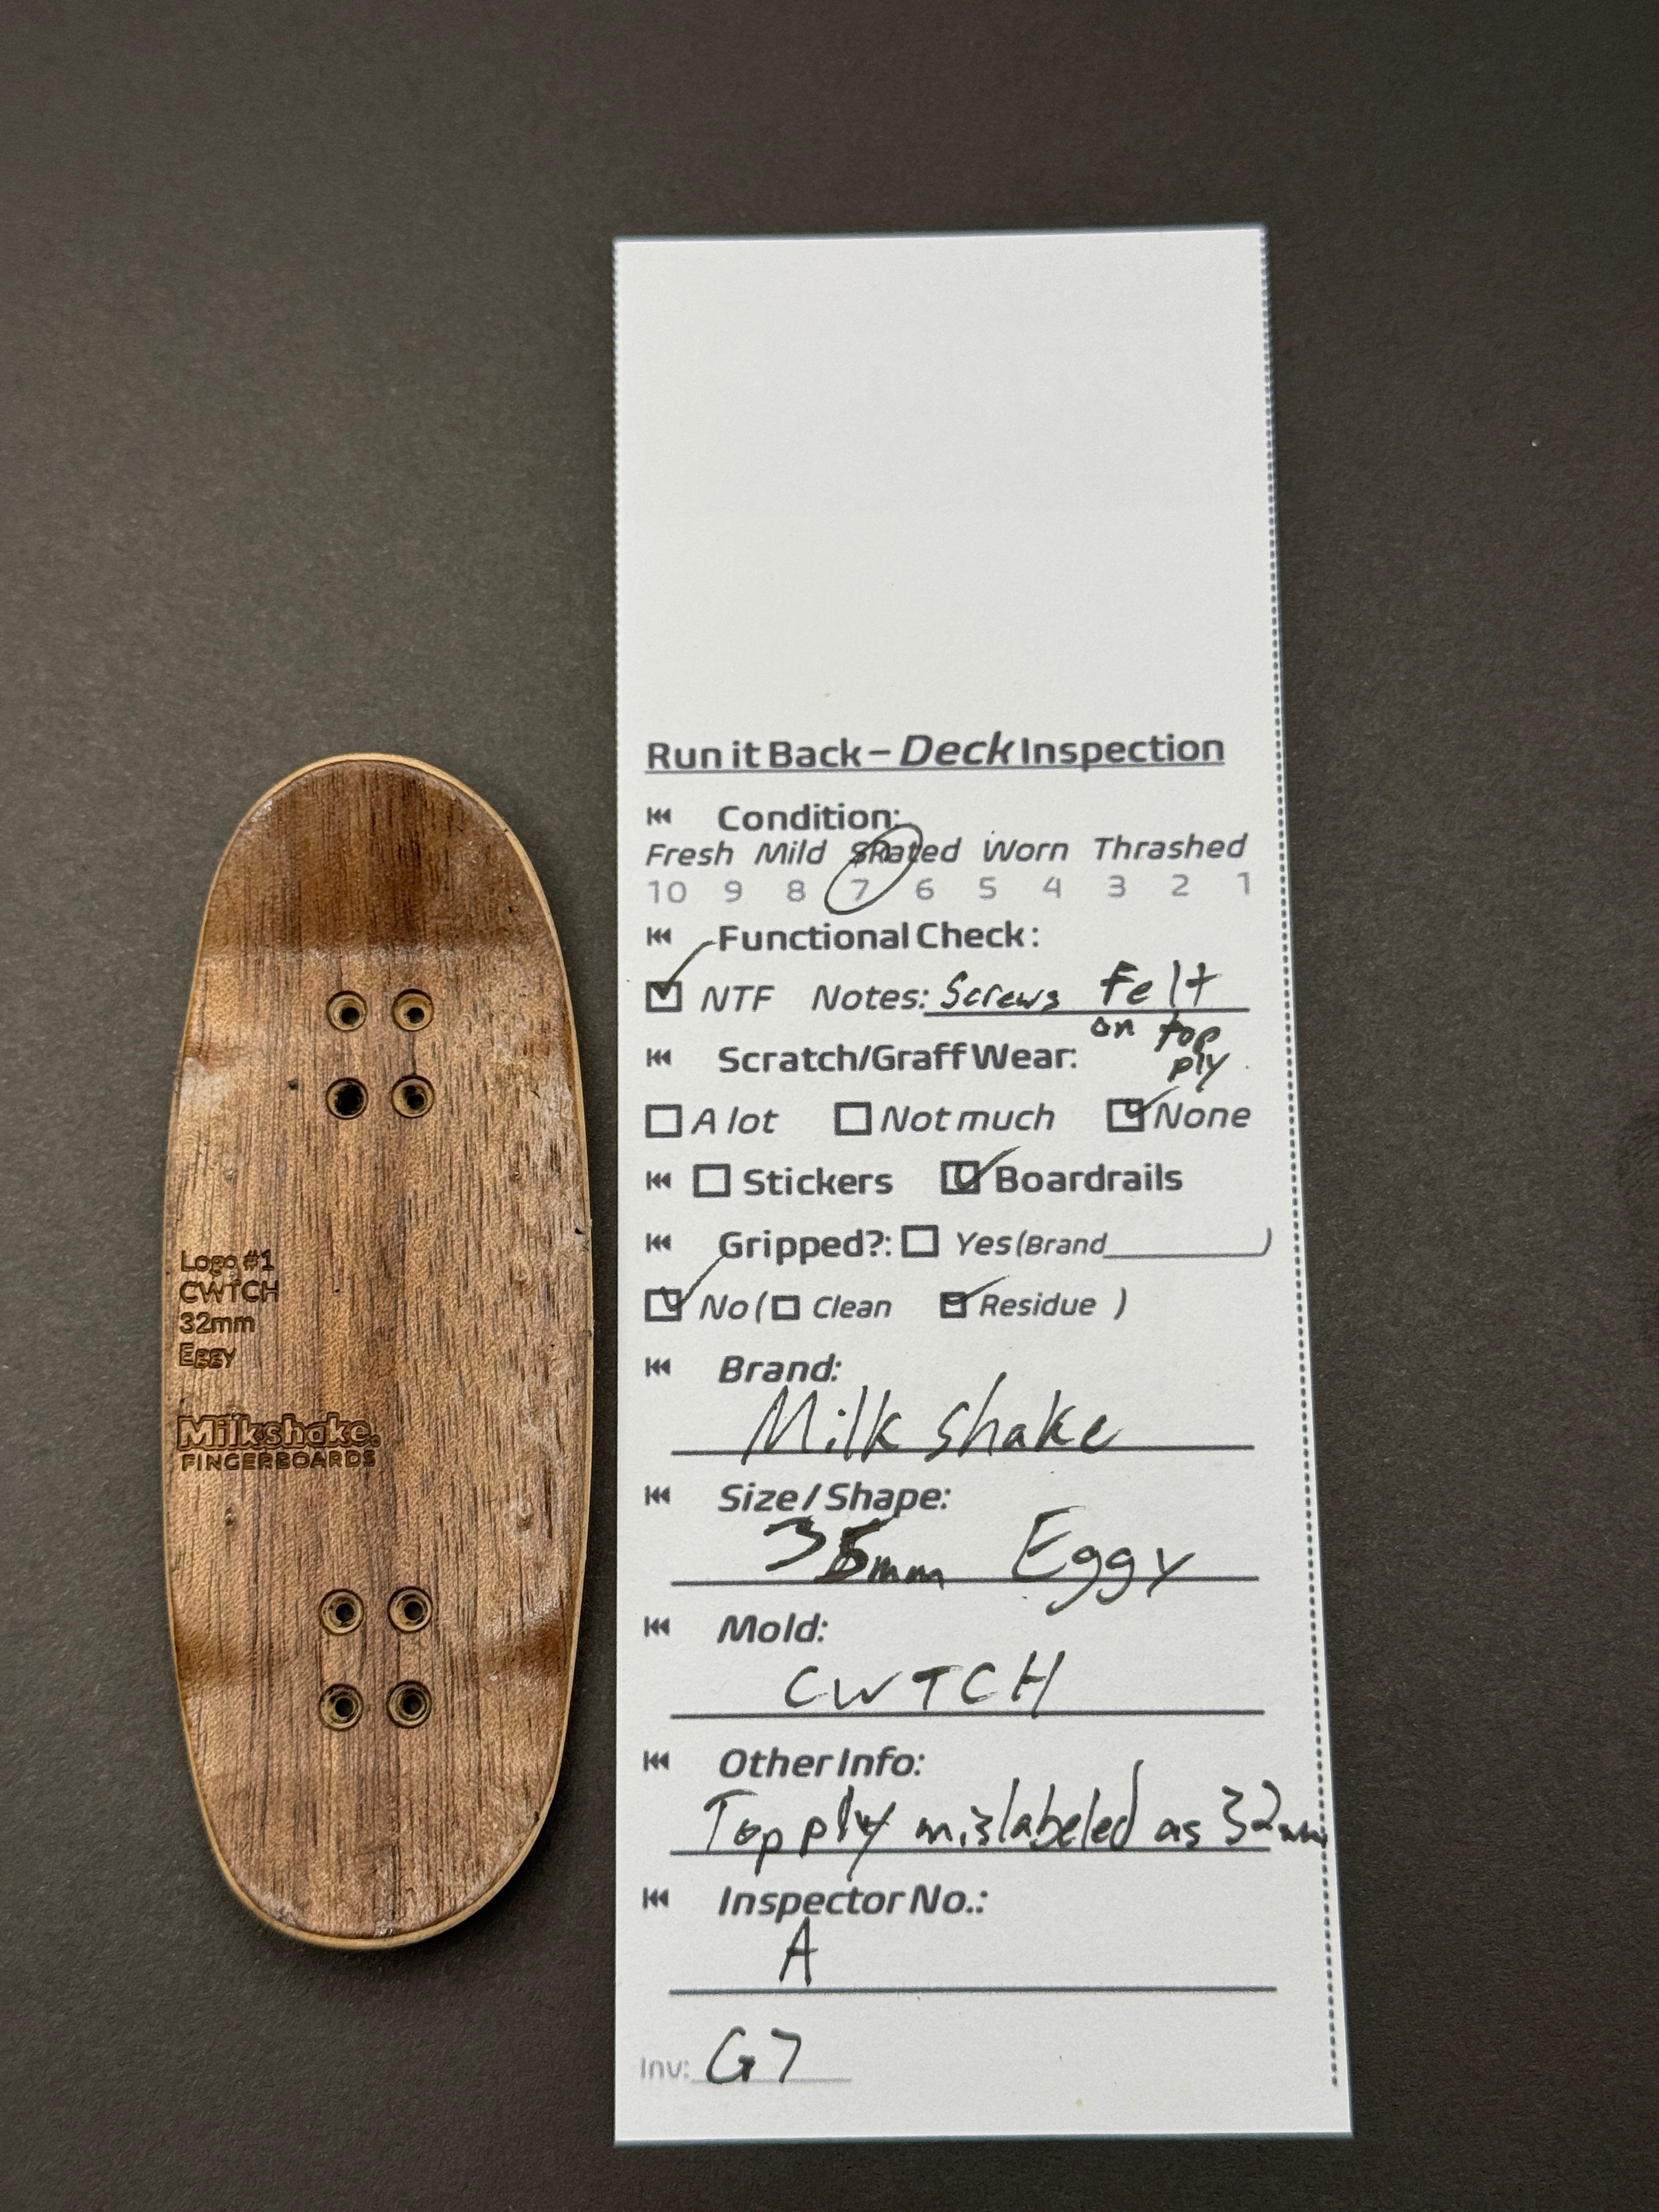 Logo #1
CWTCH
32mm
Eggy
Milkshake.
FINGERBOARDS
Run it Back – Deck Inspection
Condition:
Fresh Mild Skated Worn Thrashed
10 9 8 7 6 5 4 3 2 1
Functional Check:
NTF Notes: Screws Felt
on top
ply
Scratch/Graff Wear:
A lot Not much None
Stickers Boardrails
Gripped?: Yes (Brand__________)
No ( Clean Residue )
Brand:
Milkshake
Size / Shape:
35mm Eggy
Mold:
CWTCH
Other Info:
Top ply mislabeled as 32mm
Inspector No.:
A
Inv: G7